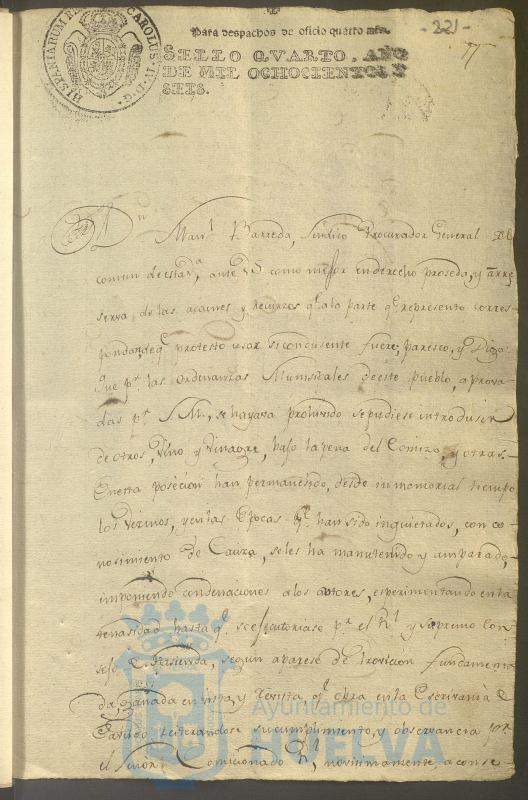 HISPANIARUM REX CAROLUS IV D G
Para despachos de oficio quatro mrs.
-221-
SELLO QVARTO, AÑO
DE MIL OCHOCIENTOS Y
SEIS.
Dn Manl Barreda, Sindico Procurador General del
comun de esta va, ante VS como mejor en derecho proseda, y a rre
serva de las aciones y recurzos qe a la parte qe represento corres-
pondan, de qe protesto usar si conducente fuere, paresco, y Digo
Que pr las Ordenanzas Munisipales de este pueblo, aprova
das pr S.M., se hayava prohivido se pudiese introdusir
de otros, Vino y Vinagre, bajo la pena del Comizo, y otras.
En esta posecion han permanesido, desde inmemorial tiempo
los Vezinos, y en las Epocas qe han sido inquietados, con co-
nosimiento de Cauza, se les ha manutenido y amparado,
imponiendo condenaciones a los autores, esperimentando en ta
tenasidad hasta qe se ejecutoriase pr el Rl y Supremo Con
sejo de Hasienda, segun aparese de Provicion fundamenta
da, ganada en vista, y revista qe obra en la Escrivania de
Cavildo reiterandose su cumplimiento, y observancia por
el Señor Comicionado Rl, novisimamente, a conse
Ayuntamiento de
HUELVA